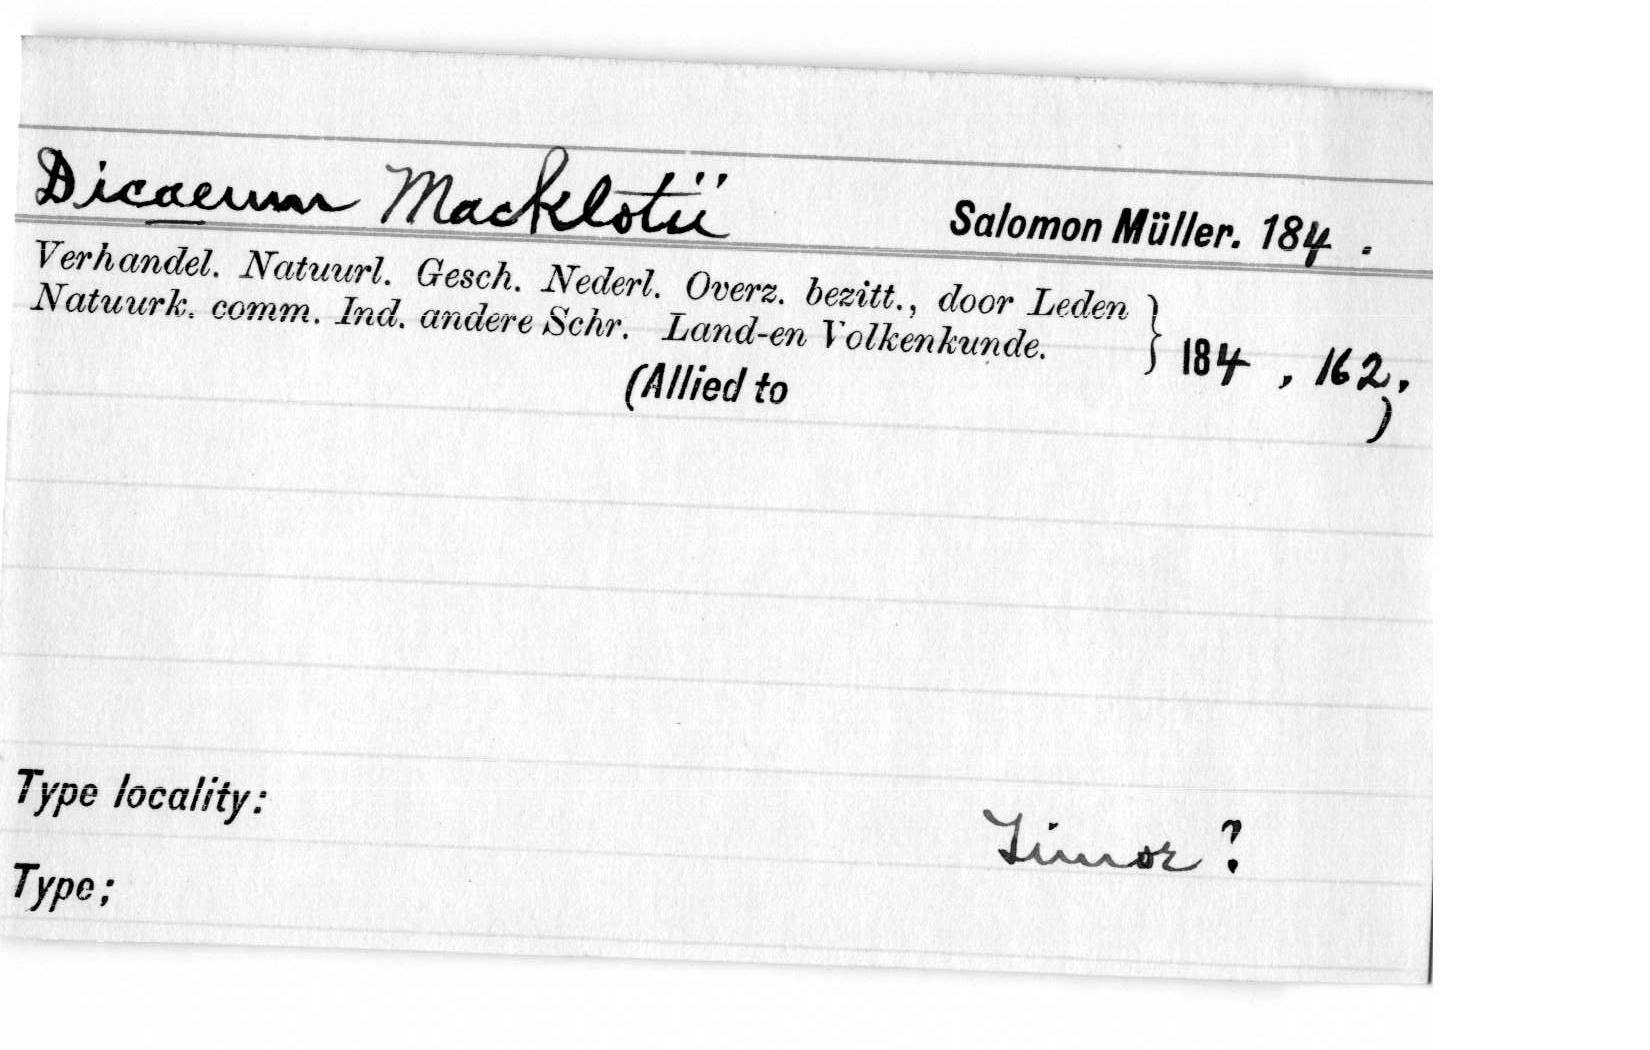 Dicaeum Macklotii Salomon Müller. 184 .
Verhandel. Natuurl. Gesch. Nederl. Overz. bezitt., door Leden
Natuurk. comm. Ind. andere Schr. Land-en Volkenkunde. } 184 , 162,
(Allied to )
Type locality:
Timor ?
Type;